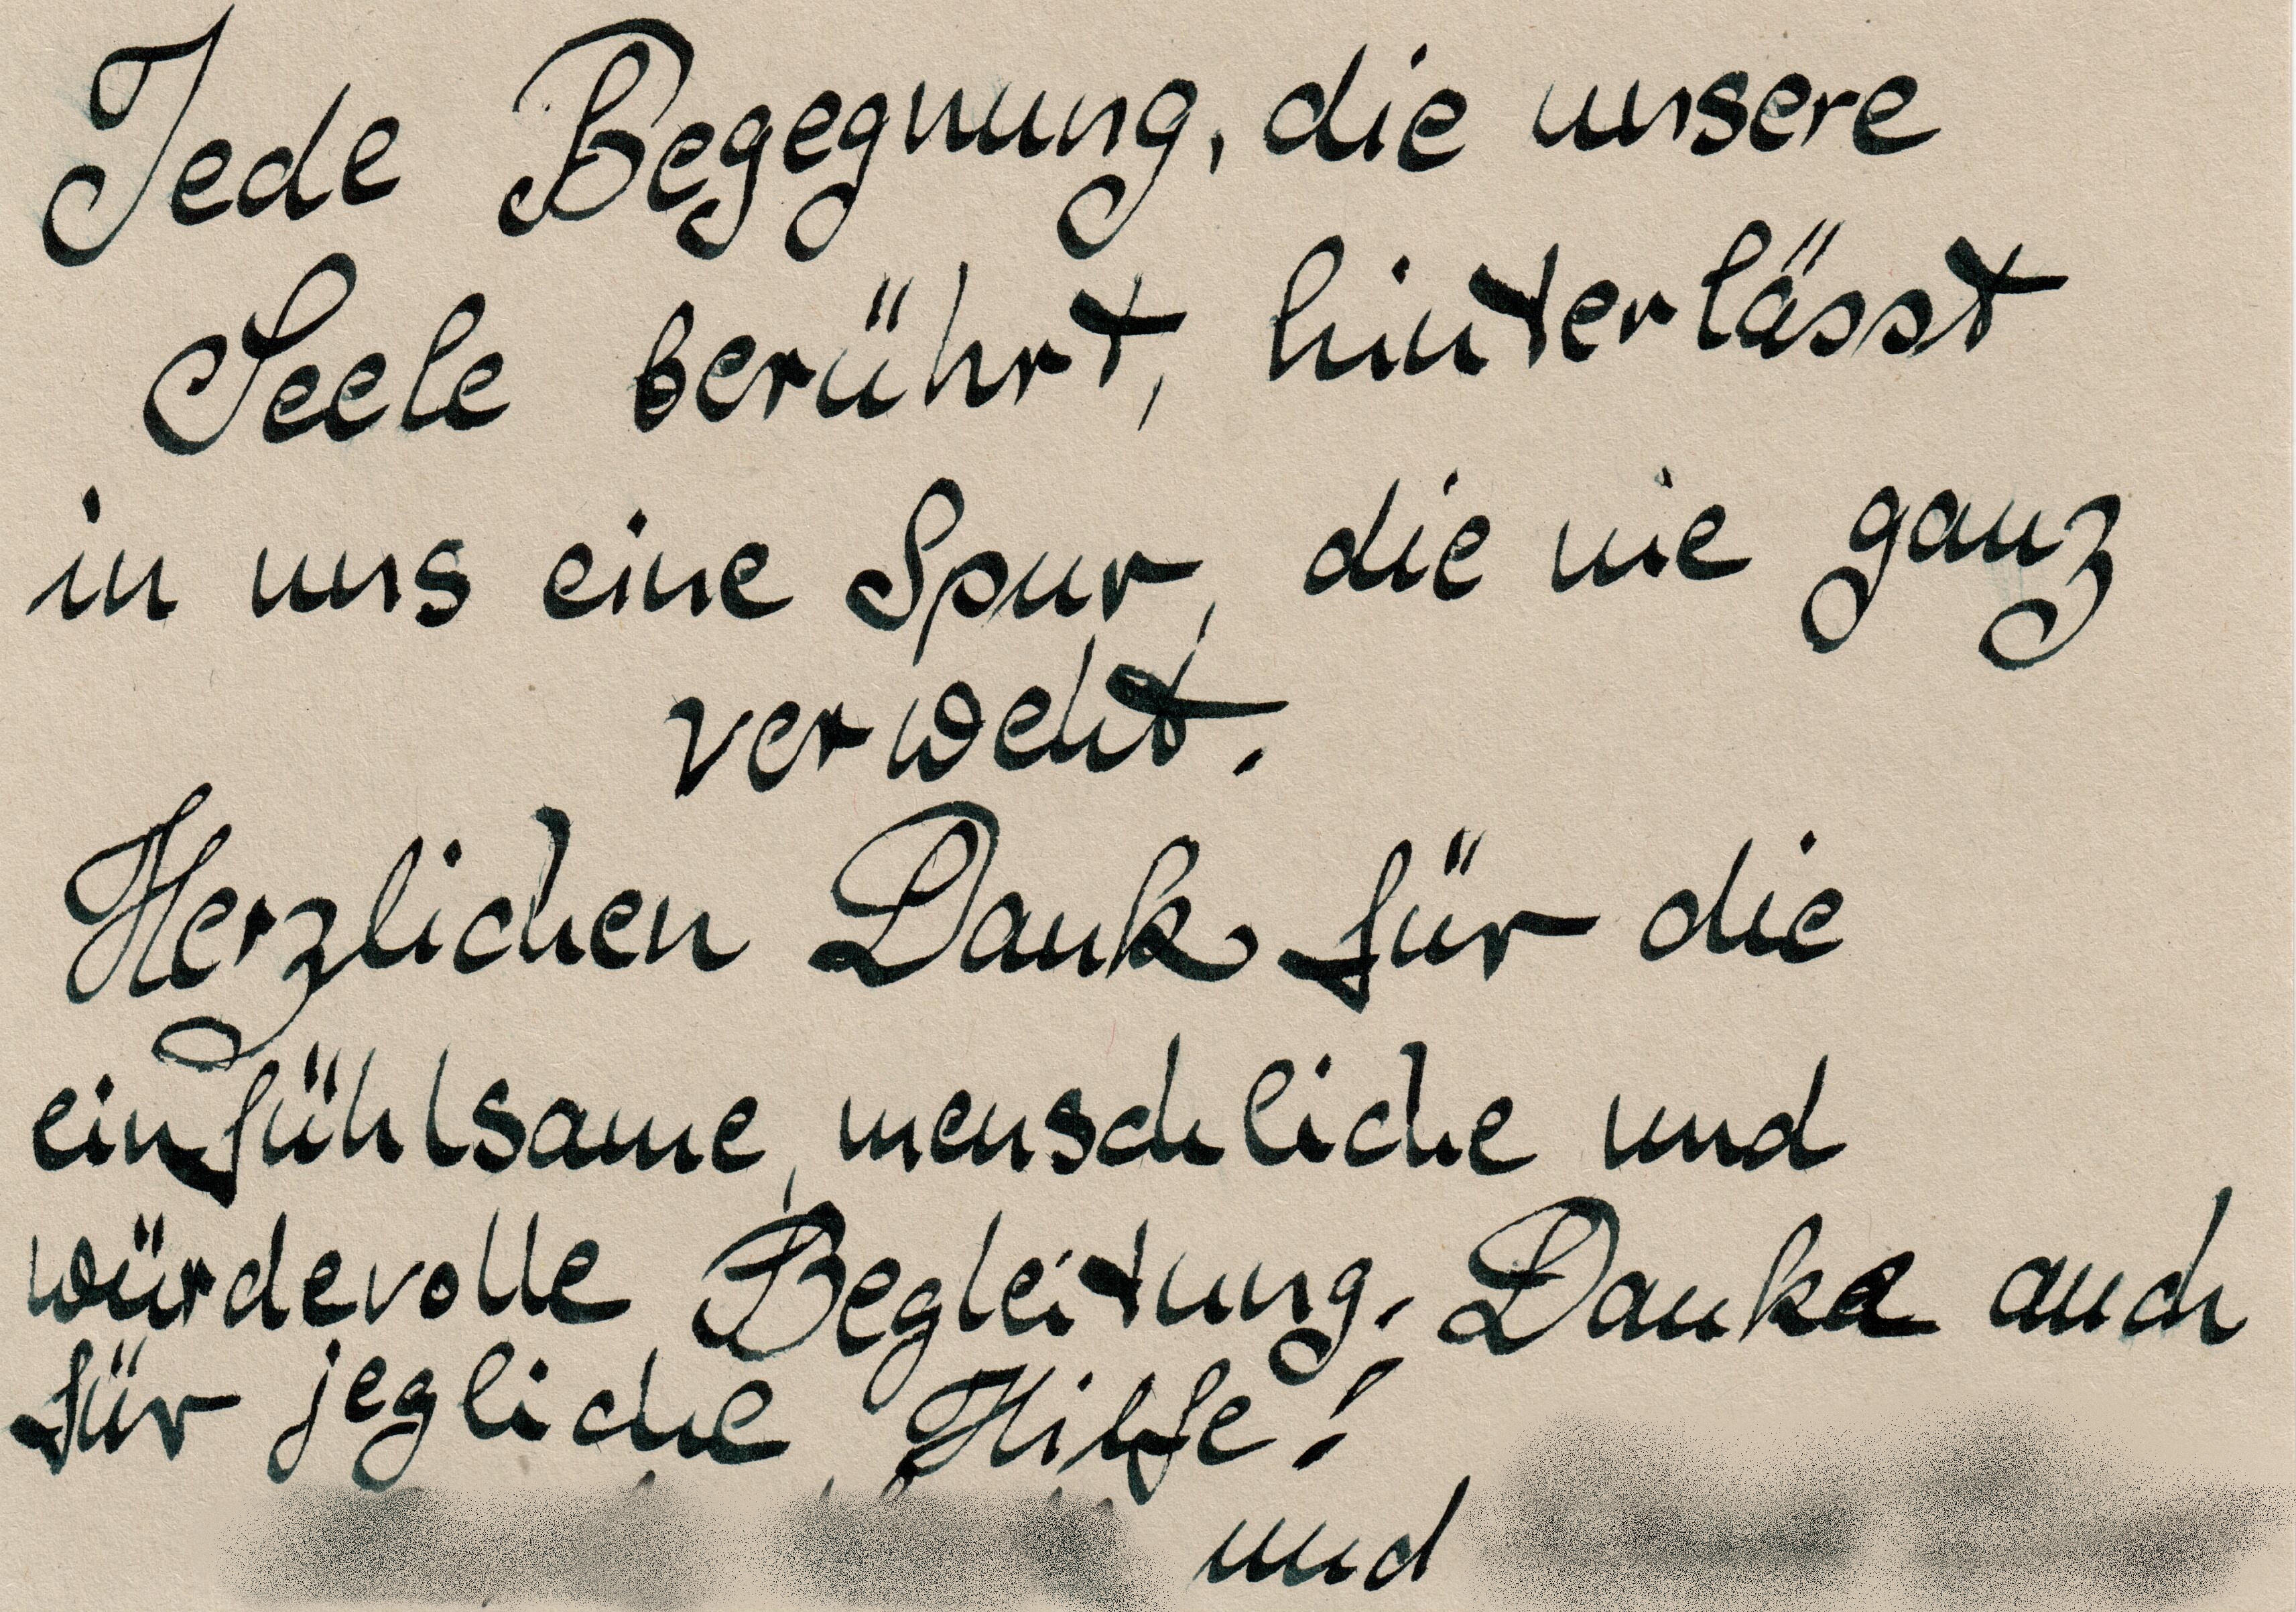 Jede Begegnung, die unsere
Seele berührt, hinterlässt
in uns eine Spur, die nie ganz
verweht.
Herzlichen Dank für die
einfühlsame, menschliche und
würdevolle Begleitung. Danke auch
für jegliche Hilfe!
und